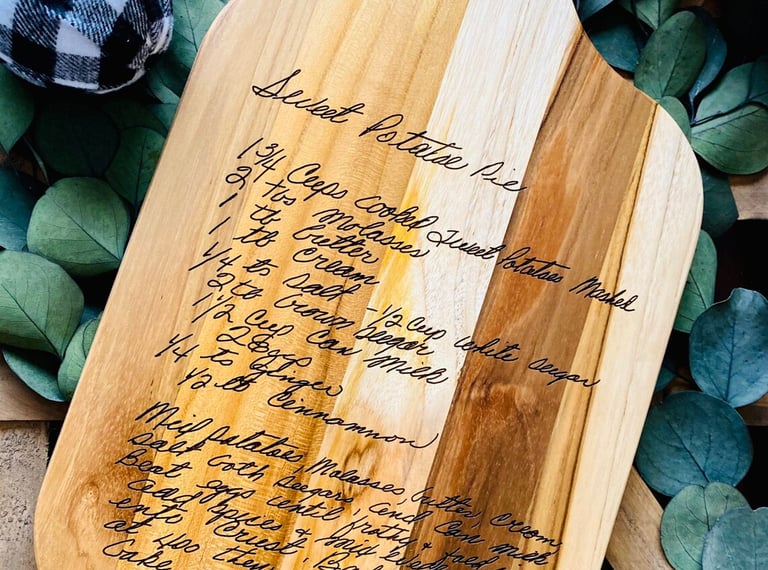 Sweet Potatoe Pie
1 3/4 Cups cooked Sweet Potatoes Mashed
2 tbs Molasses
1 tb butter
1 tb cream
1/4 ts salt - 1/2 cup white sugar
2 tb brown sugar
1 1/2 cup Can Milk
2 Eggs
1/4 ts Ginger
1/2 ts Cinnamnon
Mix potatoes, Molasses, butter, cream,
salt both sugars, and Can milk
Beat eggs until frothy & add
add spices & mix
into crust,
at 400 then
Cake